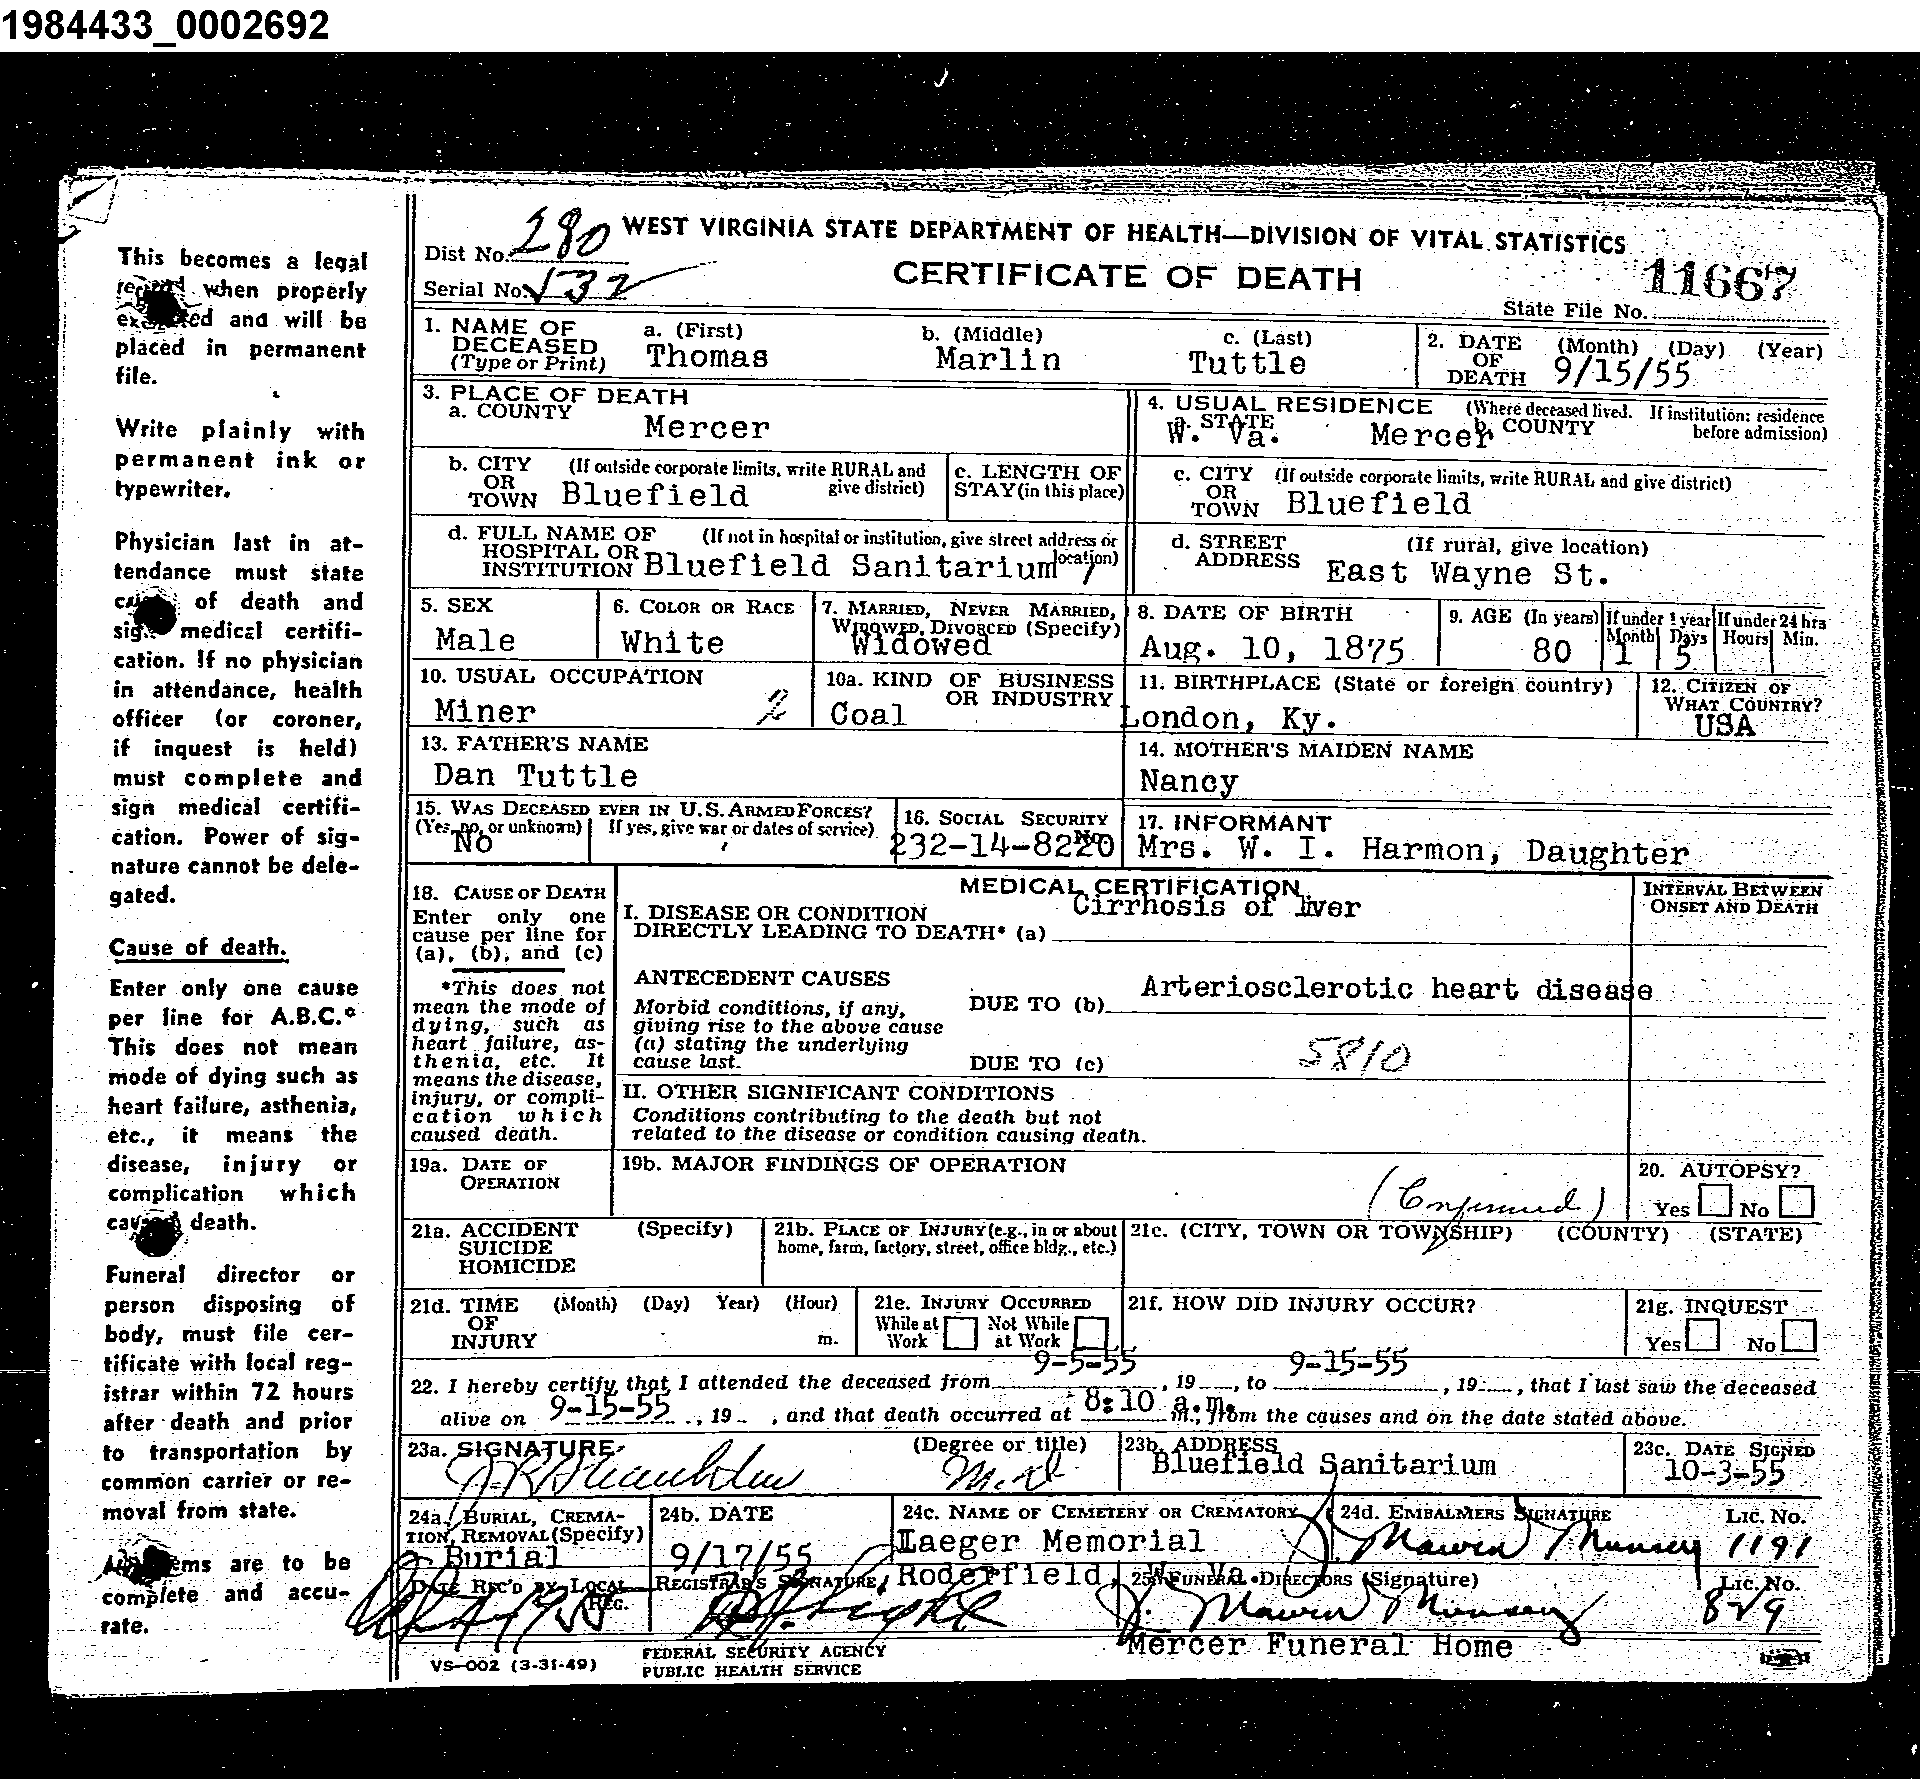 1984433_0002692
This becomes a legal
when properly
and will be
placed in permanent
file.
Write plainly with
permanent ink or
typewriter.
Physician last in at-
tendance must state
of death and
medical certifi-
cation. If no physician
in attendance, health
officer (or coroner,
if inquest is held)
must complete and
sign medical certifi-
cation. Power of sig-
nature cannot be dele-
gated.
Cause of death.
Enter only one cause
per line for A.B.C.*
This does not mean
mode of dying such as
heart failure, asthenia,
etc., it means the
disease, injury or
complication which
death.
Funeral director or
person disposing of
body, must file cer-
tificate with local reg-
istrar within 72 hours
after death and prior
to transportation by
common carrier or re-
moval from state.
are to be
complete and accu-
rate.
WEST VIRGINIA STATE DEPARTMENT OF HEALTH—DIVISION OF VITAL STATISTICS
Dist No. 280
CERTIFICATE OF DEATH
Serial No. 532
State File No. 11667
1. NAME OF DECEASED (Type or Print) a. (First) Thomas b. (Middle) Marlin c. (Last) Tuttle
2. DATE OF DEATH (Month) (Day) (Year) 9/15/55
3. PLACE OF DEATH
a. COUNTY Mercer
4. USUAL RESIDENCE (Where deceased lived. If institution: residence before admission)
a. STATE W. Va. b. COUNTY Mercer
b. CITY OR TOWN (If outside corporate limits, write RURAL and give district) Bluefield
c. LENGTH OF STAY (in this place)
c. CITY OR TOWN (If outside corporate limits, write RURAL and give district) Bluefield
d. FULL NAME OF HOSPITAL OR INSTITUTION (If not in hospital or institution, give street address or location) Bluefield Sanitarium
d. STREET ADDRESS (If rural, give location) East Wayne St.
5. SEX Male
6. COLOR OR RACE White
7. MARRIED, NEVER MARRIED, WIDOWED, DIVORCED (Specify) Widowed
8. DATE OF BIRTH Aug. 10, 1875
9. AGE (In years) 80 If under 1 year Month 1 Days 5 If under 24 hrs Hours Min.
10. USUAL OCCUPATION Miner
10a. KIND OF BUSINESS OR INDUSTRY Coal
11. BIRTHPLACE (State or foreign country) London, Ky.
12. CITIZEN OF WHAT COUNTRY? USA
13. FATHER'S NAME Dan Tuttle
14. MOTHER'S MAIDEN NAME Nancy
15. WAS DECEASED EVER IN U.S. ARMED FORCES? (Yes, no, or unknown) No If yes, give war or dates of service)
16. SOCIAL SECURITY No. 232-14-8220
17. INFORMANT Mrs. W. I. Harmon, Daughter
18. CAUSE OF DEATH
Enter only one
cause per line for
(a), (b), and (c)
*This does not
mean the mode of
dying, such as
heart failure, as-
thenia, etc. It
means the disease,
injury, or compli-
cation which
caused death.
MEDICAL CERTIFICATION
INTERVAL BETWEEN ONSET AND DEATH
I. DISEASE OR CONDITION DIRECTLY LEADING TO DEATH* (a) Cirrhosis of liver
ANTECEDENT CAUSES
Morbid conditions, if any,
giving rise to the above cause
(a) stating the underlying
cause last.
DUE TO (b) Arteriosclerotic heart disease
DUE TO (c) 5810
II. OTHER SIGNIFICANT CONDITIONS
Conditions contributing to the death but not
related to the disease or condition causing death.
19a. DATE OF OPERATION
19b. MAJOR FINDINGS OF OPERATION
(Confirmed)
20. AUTOPSY? Yes No
21a. ACCIDENT SUICIDE HOMICIDE (Specify)
21b. PLACE OF INJURY (e.g., in or about home, farm, factory, street, office bldg., etc.)
21c. (CITY, TOWN OR TOWNSHIP) (COUNTY) (STATE)
21d. TIME OF INJURY (Month) (Day) Year) (Hour) m.
21e. INJURY OCCURRED While at Work Not While at Work
21f. HOW DID INJURY OCCUR?
21g. INQUEST Yes No
22. I hereby certify that I attended the deceased from 9-5-55, 19 , to 9-15-55, 19 , that I last saw the deceased
alive on 9-15-55, 19 , and that death occurred at 8:10 a.m. m., from the causes and on the date stated above.
23a. SIGNATURE (Degree or title) M.D.
23b. ADDRESS Bluefield Sanitarium
23c. DATE SIGNED 10-3-55
24a. BURIAL, CREMATION, REMOVAL (Specify) Burial
24b. DATE 9/17/55
24c. NAME OF CEMETERY OR CREMATORY Iaeger Memorial
Roderfield, W. Va.
24d. EMBALMERS SIGNATURE J. Mawen Munsey LIC. NO. 1191
DATE REC'D BY LOCAL REG.
REGISTRAR'S SIGNATURE
25. FUNERAL DIRECTORS (Signature) J. Mawen Munsey LIC. NO. 829
Mercer Funeral Home
VS-002 (3-31-49)
FEDERAL SECURITY AGENCY
PUBLIC HEALTH SERVICE